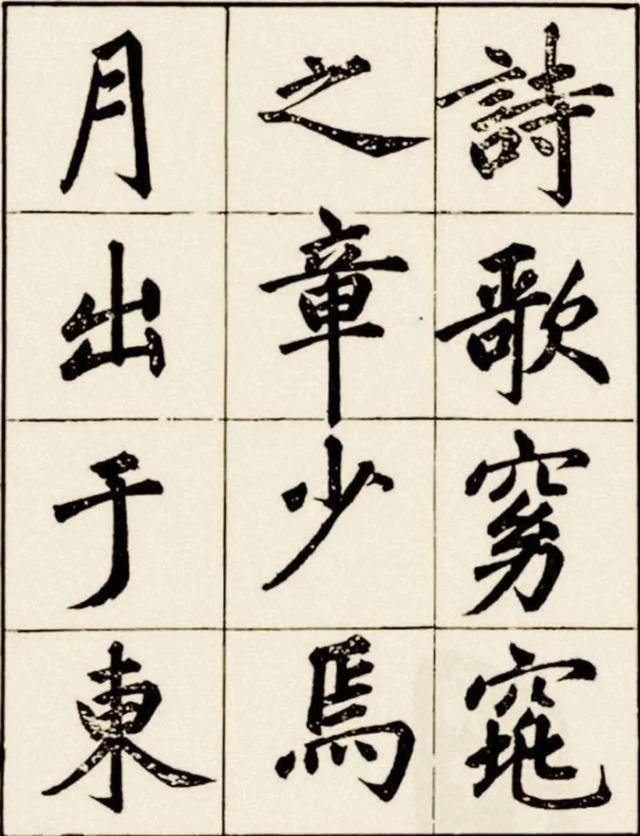 詩歌窈窕
之章少焉
月出于東